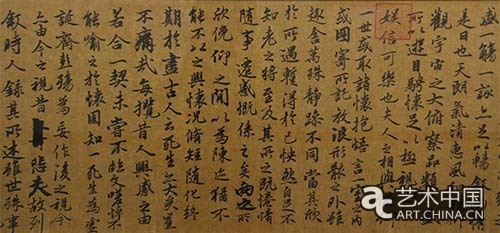 盛一觴一詠亦足以暢敘
是日也天朗氣清惠風
觀宇宙之大俯察品類
所以遊目騁懷足以極視
娛信可樂也夫人之相與
一世或取諸懷抱悟言一室之內
或因寄所託放浪形骸之外雖
趣舍萬殊靜躁不同當其欣
於所遇暫得於己快然自足不
知老之將至及其所之既惓情
隨事遷感慨係之矣向之所
欣俛仰之間以為陳迹猶不
能不以之興懷況脩短隨化終
期於盡古人云死生亦大矣豈
不痛哉每攬昔人興感之由
若合一契未嘗不臨文嗟悼不
能喻之於懷固知一死生為虛
誕齊彭殤為妄作後之視今
亦由今之視昔悲夫故列
敘時人錄其所述雖世殊事
艺术中国
ART.CHINA.CN